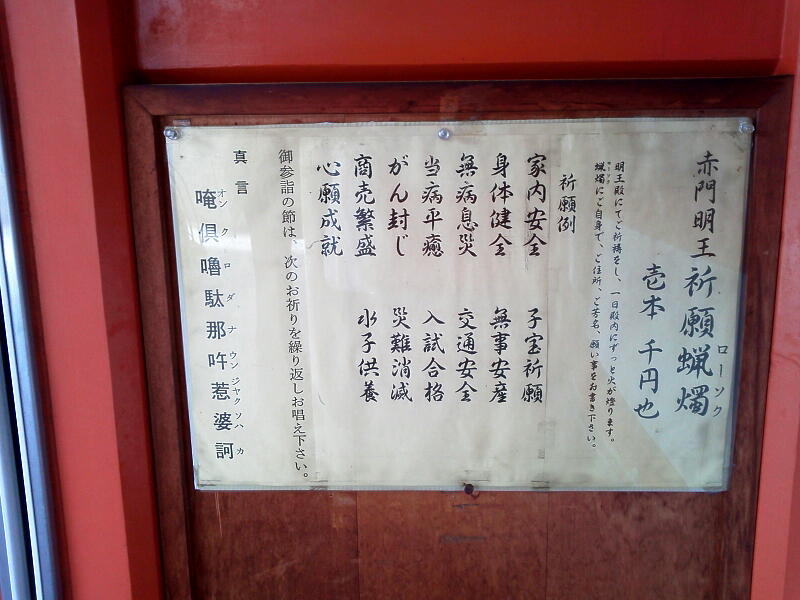 赤門明王祈願蝋燭
ローソク
壱本 千円也
明王殿にてご祈祷をし、一日殿内にずっと火が燈ります。
蝋燭にご自身で、ご住所、ご芳名、願い事をお書き下さい。
ローソク
祈願例
家内安全 子宝祈願
身体健全 無事安産
無病息災 交通安全
当病平癒 入試合格
がん封じ 災難消滅
商売繁盛 水子供養
心願成就
御参詣の節は、次のお祈りを繰り返しお唱え下さい。
真言
唵倶嚕駄那吽惹婆訶
オンクロダナウンジヤクソハカ